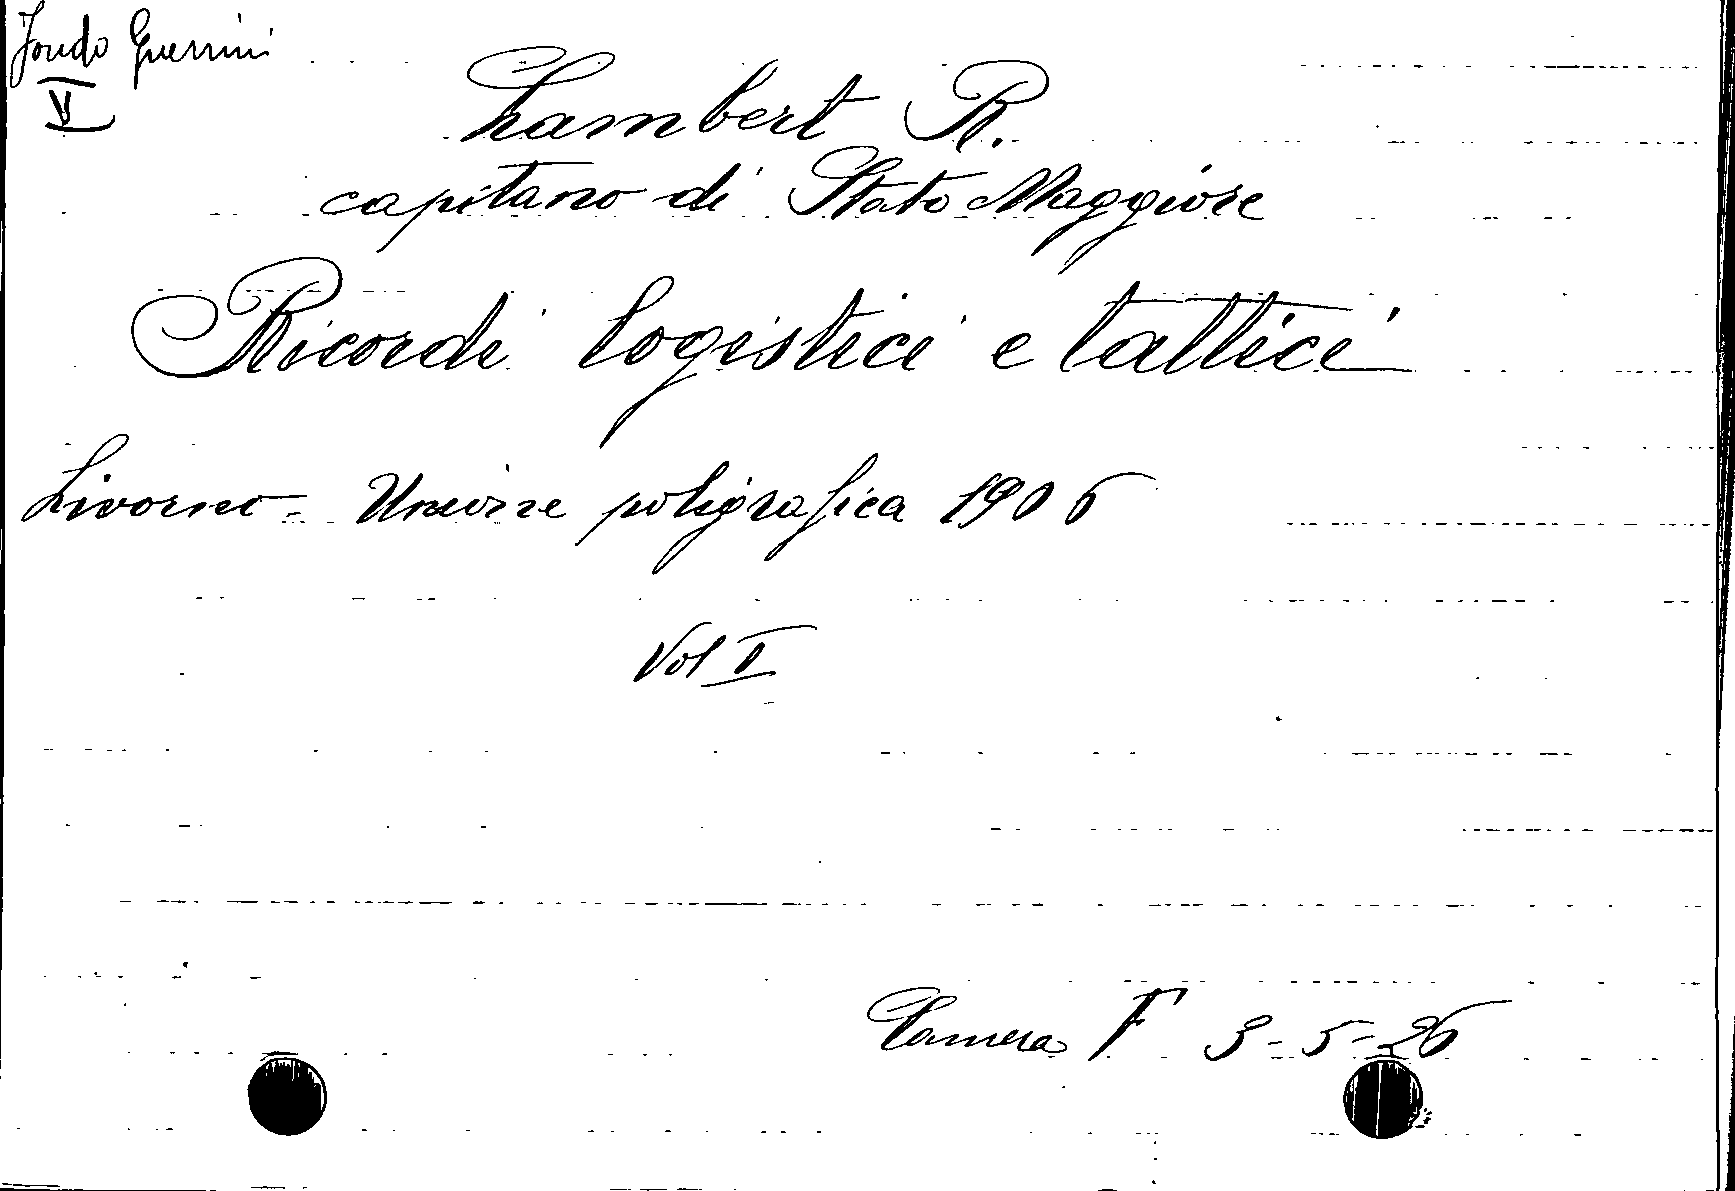 Fondo Guerrini
V
Lambert R.
capitano di Stato Maggiore
Ricordi logistici e tattici
Livorno - Unione poligrafica 1906
Vol I
Camera F 3-5-26